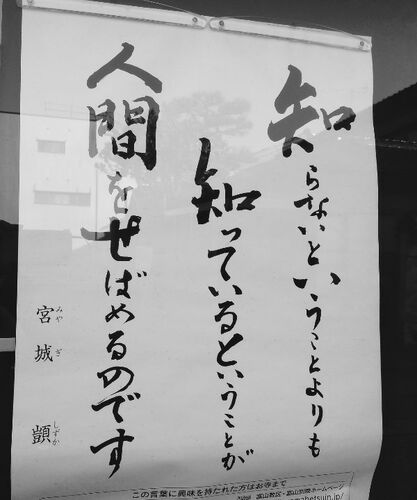 知らないということよりも
知っているということが
人間をせばめるのです
宮城 顗
みや ぎ しずか
この言葉に興味を持たれた方はお寺まで